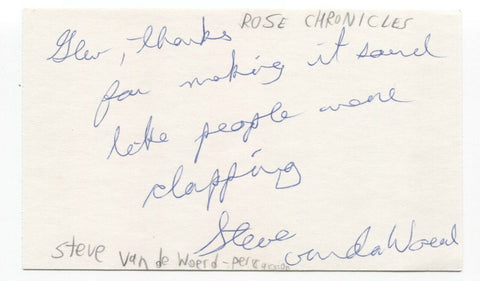 ROSE CHRONICLES
Glen, thanks
for making it sound
like people were
clapping
Steve vandaWoerd
steve Van de Woerd - percussion